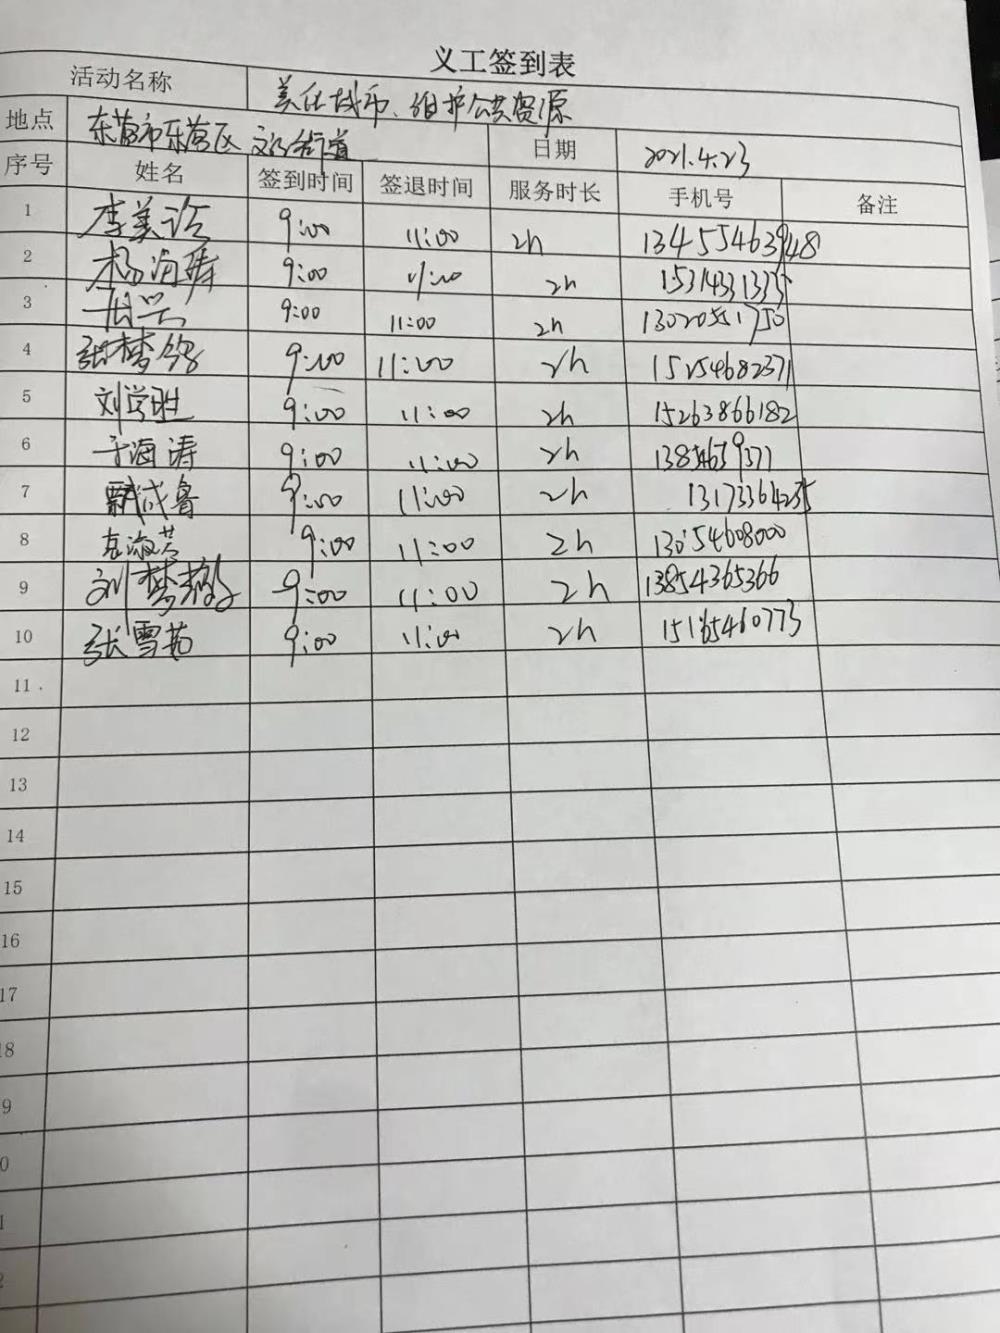 义工签到表
活动名称 美化城市、维护公共资源
地点 东营市东营区 文汇街道 日期 2021.4.23
序号 姓名 签到时间 签退时间 服务时长 手机号 备注
1 李美 9:00 11:00 2h 13455463948
2 杨海涛 9:00 11:00 2h 15314331335
3 9:00 11:00 2h 13020551750
4 张梦 9:00 11:00 2h 15254682371
5 刘学胜 9:00 11:00 2h 15263866182
6 于海涛 9:00 11:00 2h 13854639377
7 成鲁 9:00 11:00 2h 13173364235
8 淑芳 9:00 11:00 2h 13054608000
9 刘梦 9:00 11:00 2h 13854365366
10 张雪茹 9:00 11:00 2h 15165460773
11
12
13
14
15
16
17
18
9
0
1
2